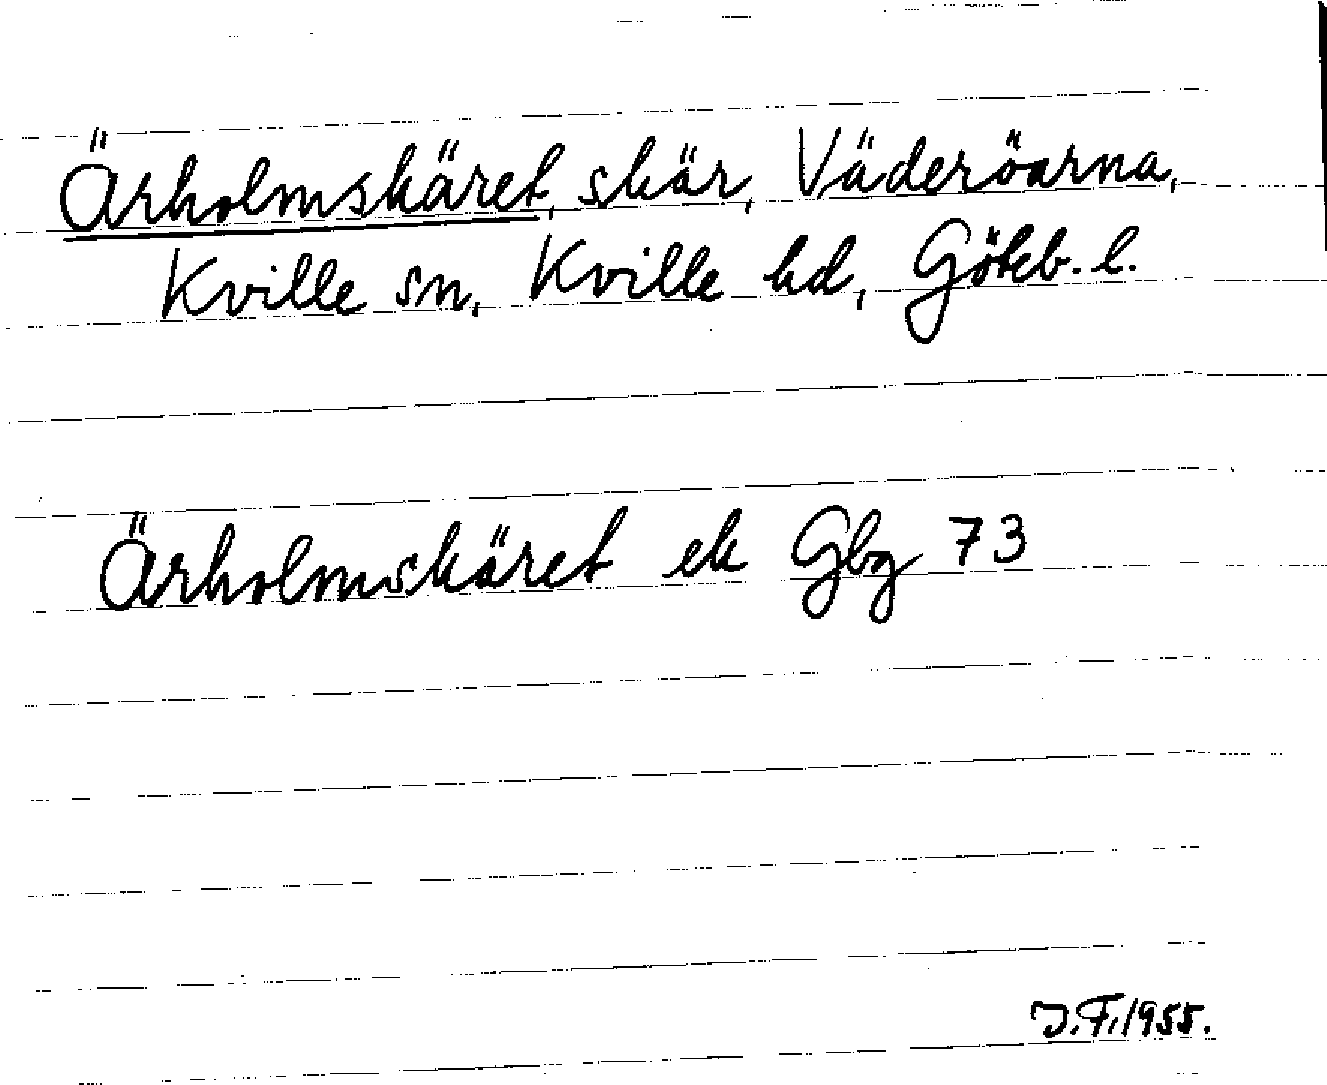 Ärholmskäret, skär, Väderöarna,
Kville sn, Kville hd, Göteb. l.
Ärholmskäret ek Gbg 73
J.F. 1955.